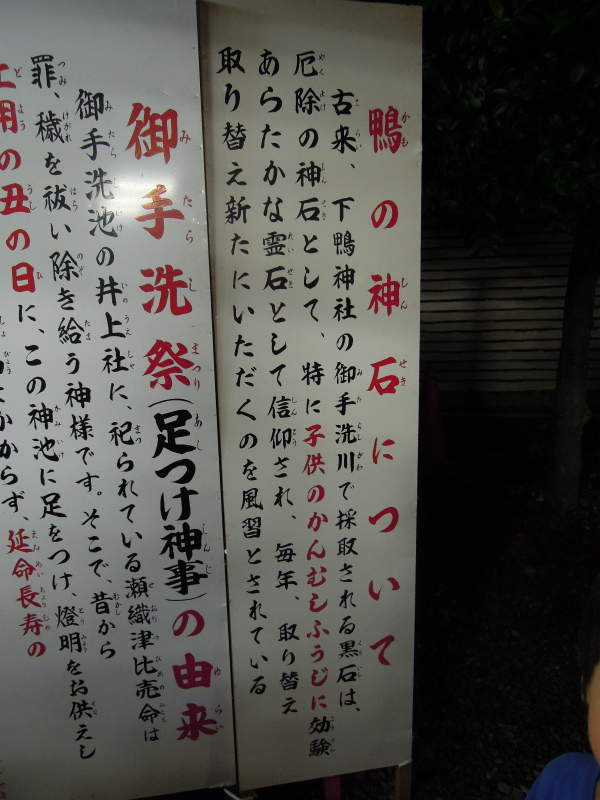 鴨の神石について
古来、下鴨神社の御手洗川で採取される黒石は、
厄除の神石として、特に子供のかんむしふうじに効験
あらたかな霊石として信仰され、毎年、取り替え
取り替え新たにいただくのを風習とされている
御手洗祭(足つけ神事)の由来
御手洗池の井上社に、祀られている瀬織津比売命は
罪、穢を祓い除き給う神様です。そこで、昔から
土用の丑の日に、この神池に足をつけ、燈明をお供えし
かからず、延命長寿の